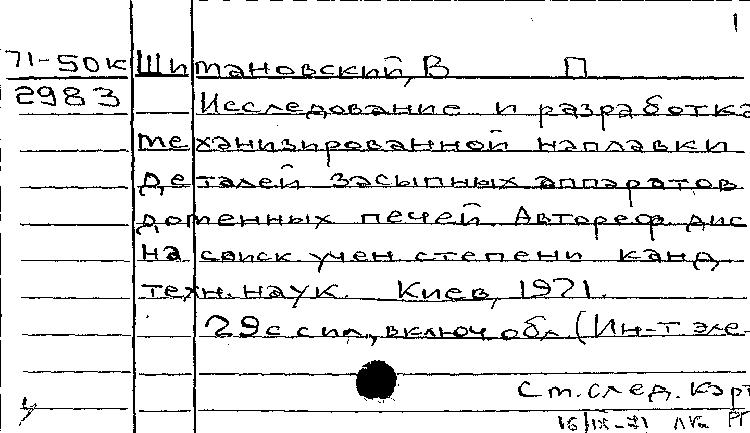 1
71-50к Шимановский, В П
2983 Исследование и разработка
механизированной наплавки
деталей засыпных аппаратов
доменных печей. Автореф дис
на соиск. учен. степени канд.
техн. наук. Киев, 1971.
29с с ил., включ обл (Ин-т эле-
См. след. кар
16/IX-71